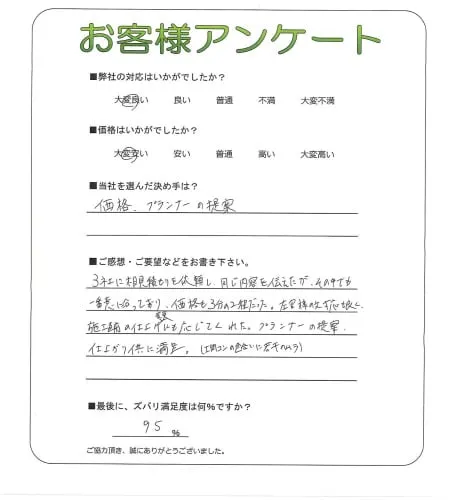 お客様アンケート
■弊社の対応はいかがでしたか？
大変良い 良い 普通 不満 大変不満
■価格はいかがでしたか？
大変安い 安い 普通 高い 大変高い
■当社を選んだ決め手は？
価格、プランナーの提案
■ご感想・ご要望などをお書き下さい。
3社に相見積もりを依頼し、同じ内容を伝えたが、その中でも
一番 になっており、価格も3分の2程だった。左官様の対応も良く、
施工 の仕上げ にも応じてくれた。プランナーの提案、
仕上がり共に満足。(土間コンの色合いに若干のムラ)
■最後に、ズバリ満足度は何％ですか？
95 ％
ご協力頂き、誠にありがとうございました。